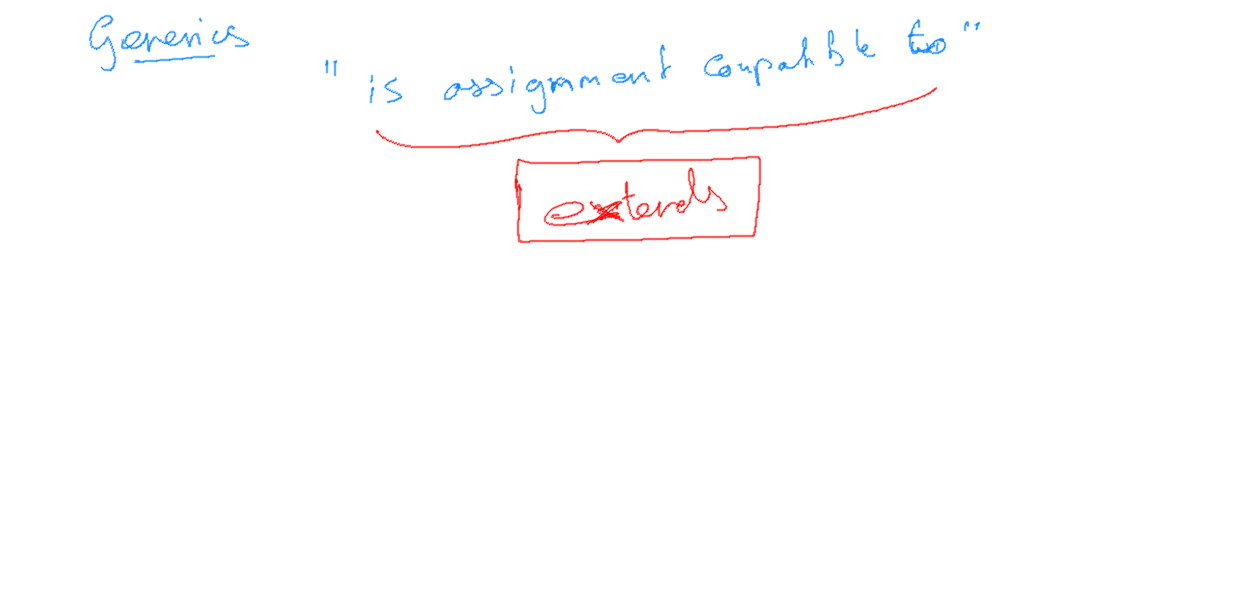 Generics
" is assignment compatible to "
extends